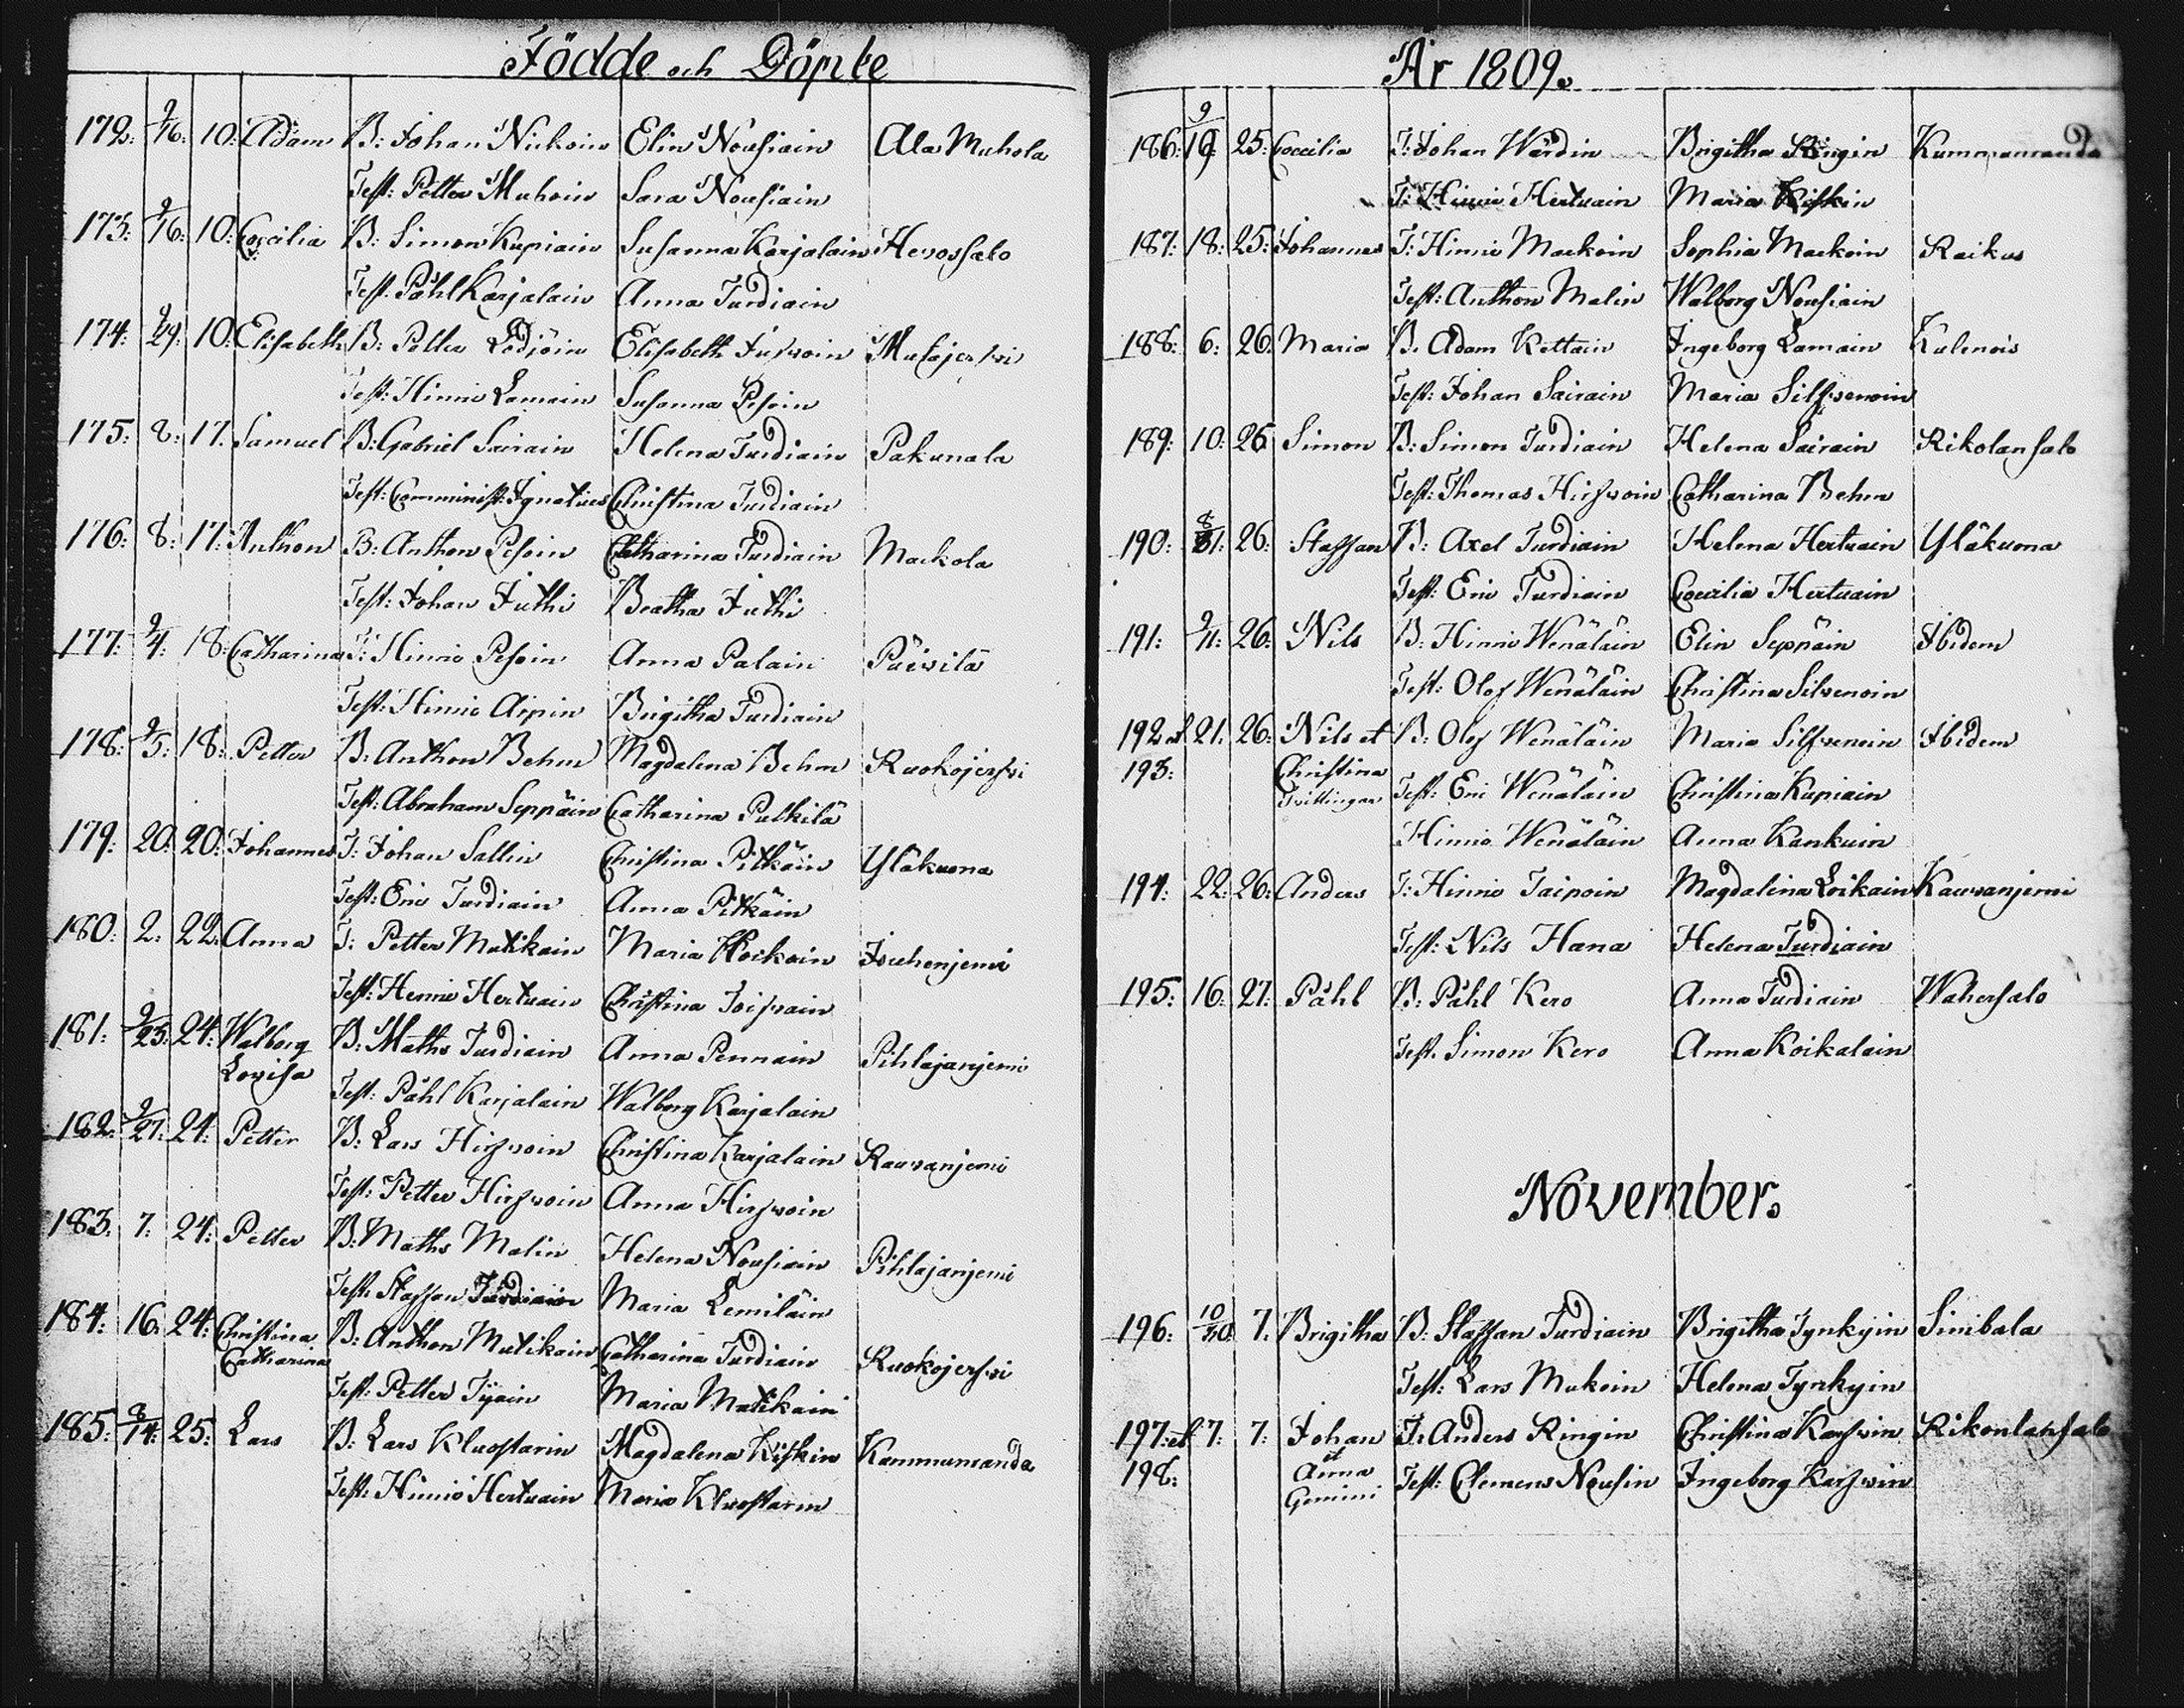 Födde och Döpte
172: 9/16: 10: Adam B: Johan Nickoin Elin Nousiain Ala Muhola
Test: Petter Muhoin Sara Nousiain
173: 9/16: 10: Coecilia B: Simon Kupiain Susanna Karjalain Hevossalo
Test: Påhl Karjalain Anna Turdiain
174: 9/29: 10: Elisabeth B: Petter Elisabeth
Test: Hinric Lamain Susanna Pesoin
175: 8: 17. Samuel B: Gabriel Sairain Helena Turdiain Pakunala
Test: Comminist: Ignatius Christina Turdiain
176: 8: 17: Anthon B: Anthon Pesoin Catharina Turdiain Mackola
Test: Johan Juthi Beatha Juthi
177: 9/4: 18: Catharina T: Hinric Pesoin Anna Palain Päivilä
Test: Hinric Arpin Brigitha Turdiain
178: 9/5: 18: Petter B: Anthon Behm Magdalena Behm Ruokojerfvi
Test: Abraham Seppäin Catharina Pulkilä
179: 20: 20: Johannes T: Johan Sallin Christina Pitkäin Yläkuona
Test: Eric Turdiain Anna Pitkäin
180: 2: 22: Anna T: Petter Matikain Maria Jouhenjemi
Test: Henric Hertuain Christina Toifvain
181: 9/23: 24: Walborg B: Maths Turdiain Anna Pennain Pihlajanjemi
Lovisa
Test: Påhl Karjalain Walborg Karjalain
182: 9/27: 24: Petter B: Lars Hirfvoin Christina Karjalain Rauvanjemi
Test: Petter Hirfvoin Anna Hirfvoin
183: 7: 24: Petter B: Maths Malin Helena Nousiain Pihlajanjemi
Test: Staffan Turdiain Maria Lemiläin
184: 16: 24: Christina B: Anthon Matikain Catharina Turdiain Ruokojerfvi
Catharina
Test: Petter Tijain Maria Matikain
185: 8/14: 25: Lars B: Lars Kluostarin Magdalena Kiskin Kammumanda
Test: Hinric Hertuain Maria Kluostarin
År 1809.
186: 9/19: 25: Coecilia T: Johan Wärdin Brigitha Ringin Kummamanda
T: Hinric Hertuain Maria Kiskin
187: 18: 25: Johannes T: Hinric Mackoin Sophia Mackoin Raikus
Test: Anthon Malin Walborg Nousiain
188: 6: 26: Maria B. Adam Kettain Ingeborg Lamain Kulenois
Test: Johan Sairain Maria Silfvenoin
189: 10: 26 Simon B: Simon Turdiain Helena Sairain Rikolansalo
Test: Thomas Hirfvoin Catharina Behm
190: 8/31: 26: Staffan B: Axel Turdiain Helena Hertuain Yläkuona
Test: Eric Turdiain Coecilia Hertuain
191: 9/11: 26: Nils B: Hinric Wenäläin Elin Seppäin Ibidem
Test: Olof Wenäläin Christina Silvenoin
192 et 21: 26: Nils et B: Olof Wenäläin Maria Silfvenoin Ibidem
193: Christina Test: Eric Wenäläin Christina Kupiain
Tvillingar
Hinric Wenäläin Anna Kankuin
194: 22: 26: Anders T: Hinric Taipoin Magdalena Loikain Kauvanjemi
Test: Nils Hana Helena Turdiain
195: 16: 27: Påhl B: Påhl Kero Anna Turdiain Wahersalo
Test. Simon Kero Anna Koikalain
November.
196: 10/30 7: Brigitha B: Staffan Turdiain Brigitha Tynkyin Simbala
Test: Lars Mukoin Helena Tynkyin
197: et 7: 7: Johan T: Anders Ringin Christina Karfvin Rikonlansalo
et
198: Anna Test: Clemens Nousin Ingeborg Karfvin
Gemini